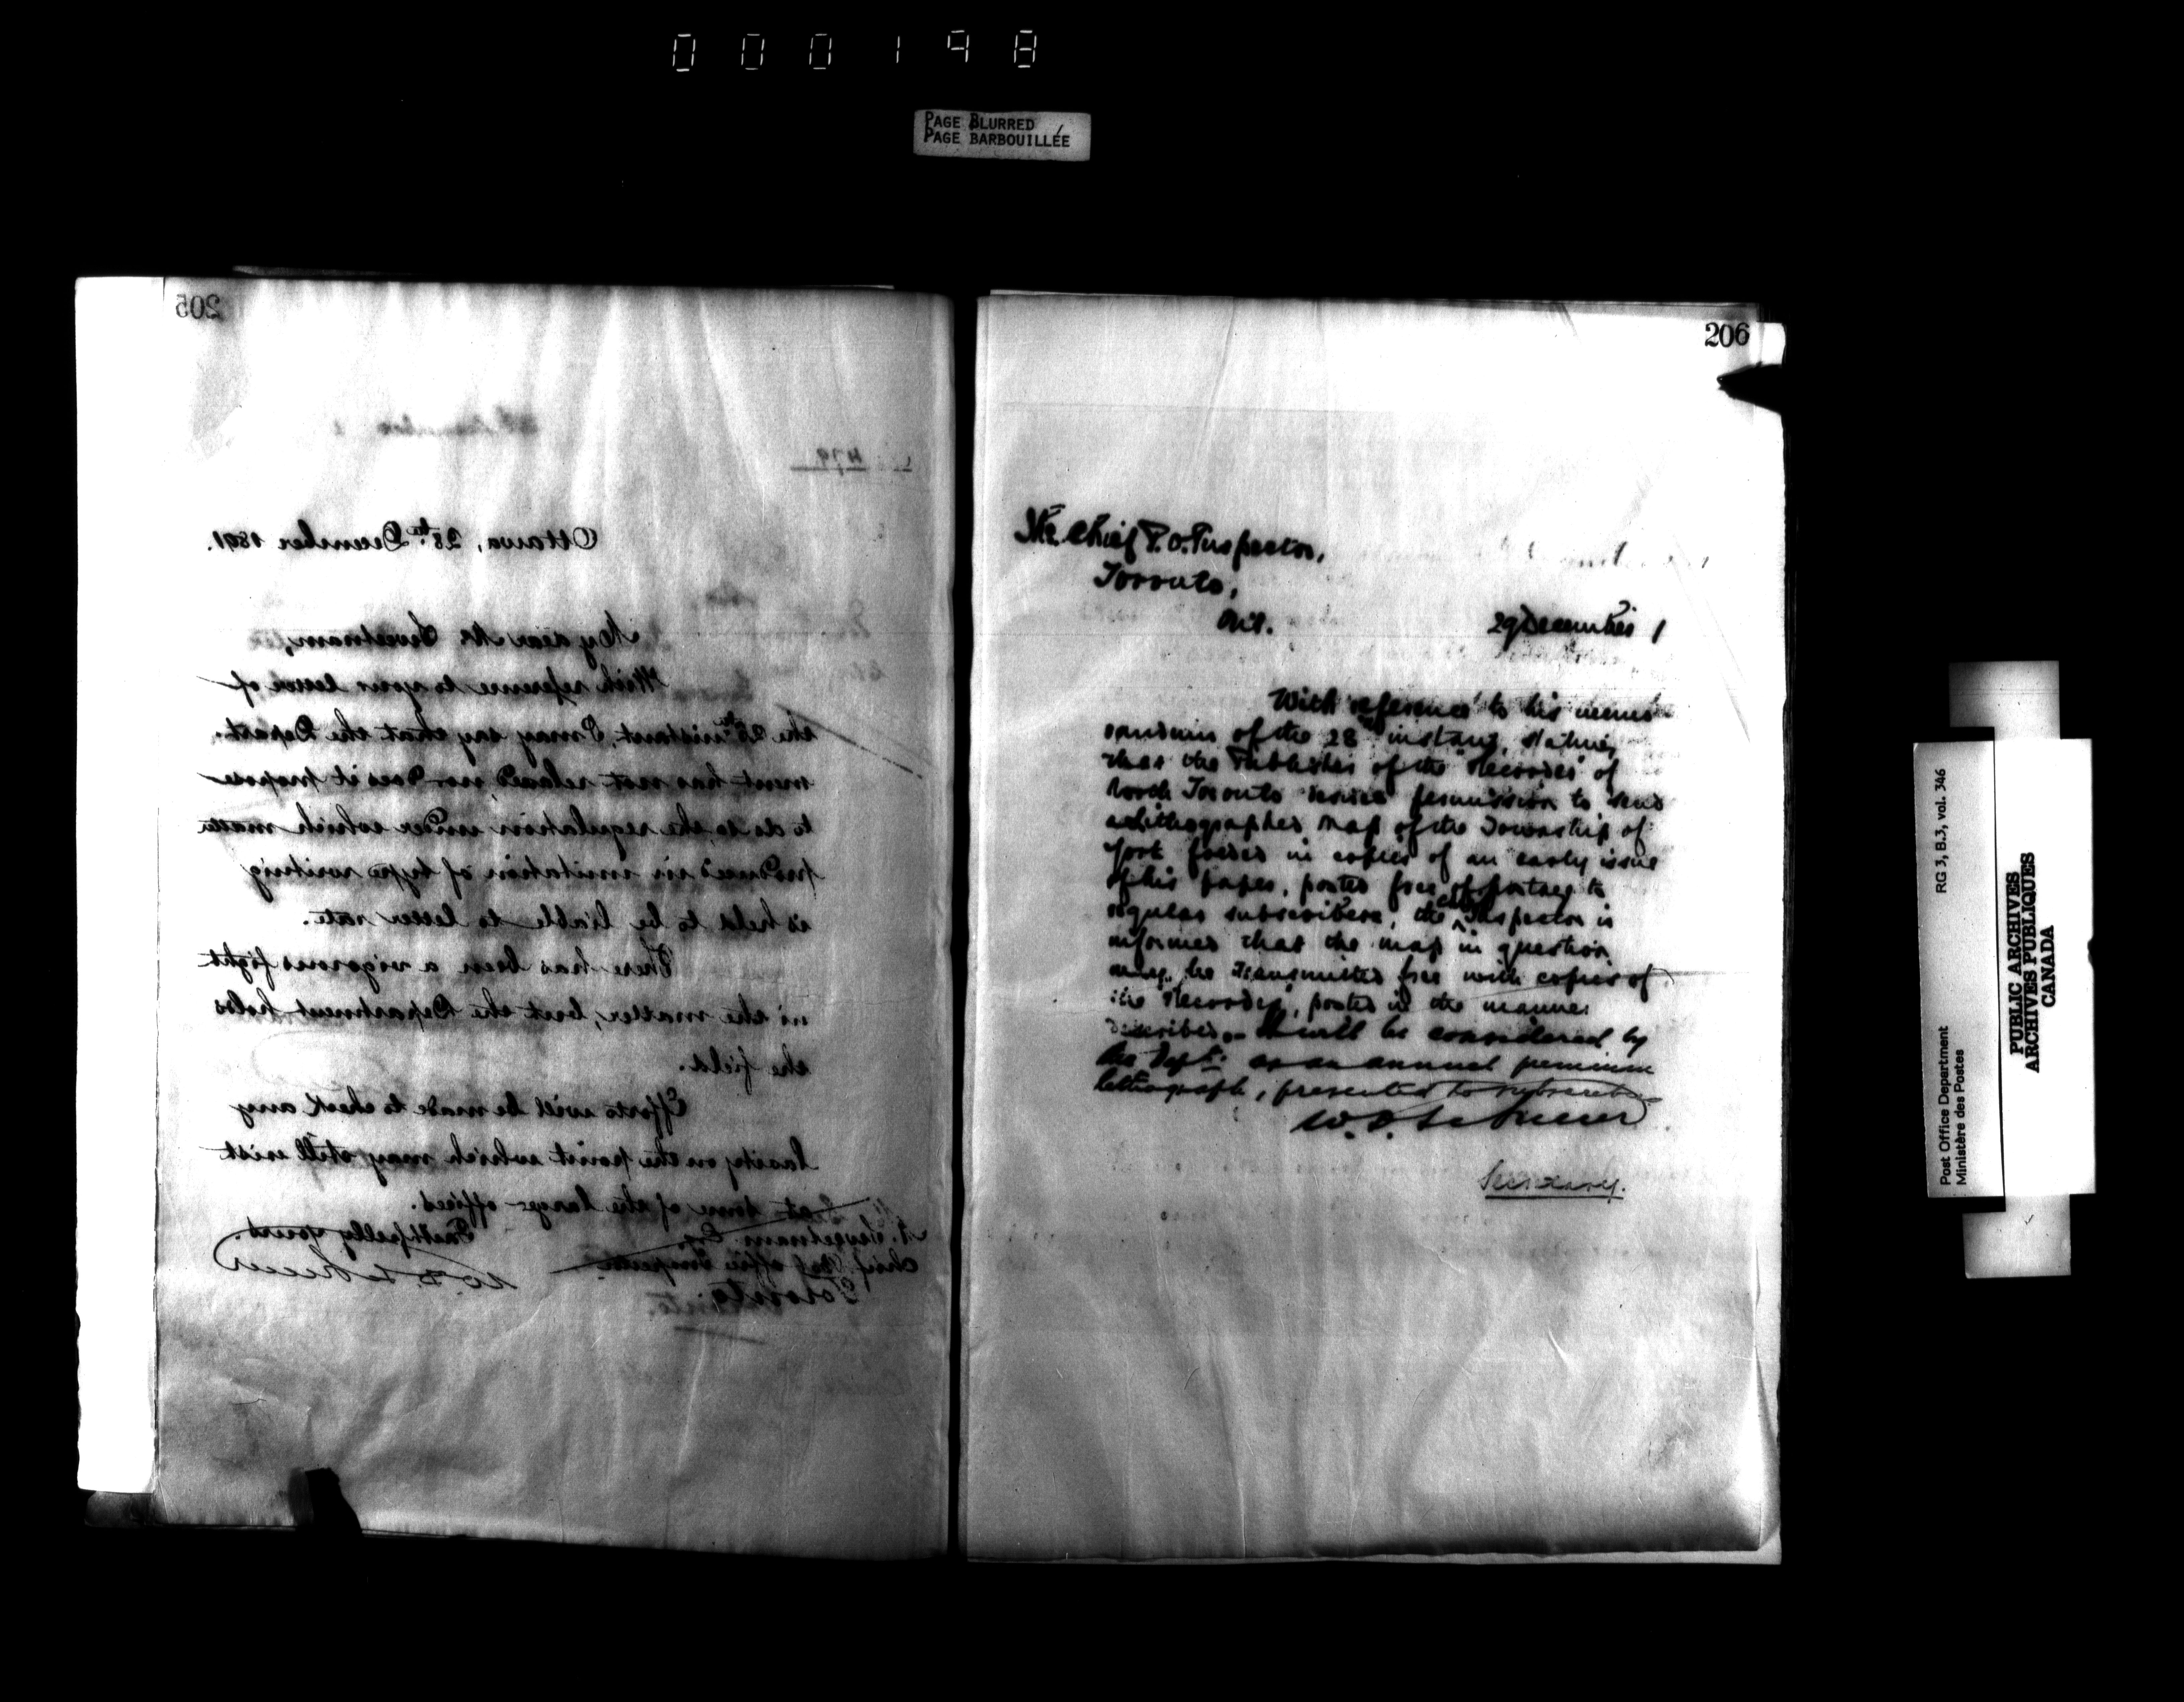 000198
PAGE BLURRED
PAGE BARBOUILLÉE
205
479
Ottawa, 28th December 1891.
My dear Mr Sweetnam,
With reference to your letter of
the 28th instant, I may say that the Depart-
ment has not relaxed, nor does it propose
to do so, the regulation under which matter
produced in imitation of type writing
is held to be liable to letter rate.
There has been a vigorous fight
in the matter, but the Department holds
the field.
Efforts will be made to check any
laxity on the point which may still exist
at some of the larger offices.
Faithfully yours.
W. D. LeSueur
M. Sweetnam Esq.
Chief Post Office Inspector
Toronto.
206
The Chief P.O. Inspector,
Toronto,
Ont.
29 December 1
With reference to his memo-
randum of the 28th instant, stating
that the Publisher of the "Recorder" of
North Toronto desires permission to send
a lithographed map of the Township of
York folded in copies of an early issue
of his paper, posted free of postage to
regular subscribers, the Chief Inspector is
informed that the map in question
may be transmitted free with copies of
the "Recorder", posted in the manner
described. It will be considered by
the Dept. as an annual premium
lithograph, presented to subscribers
W. D. LeSueur
Secretary.
Post Office Department
Ministère des Postes
RG 3, B.3, vol. 346
PUBLIC ARCHIVES
ARCHIVES PUBLIQUES
CANADA